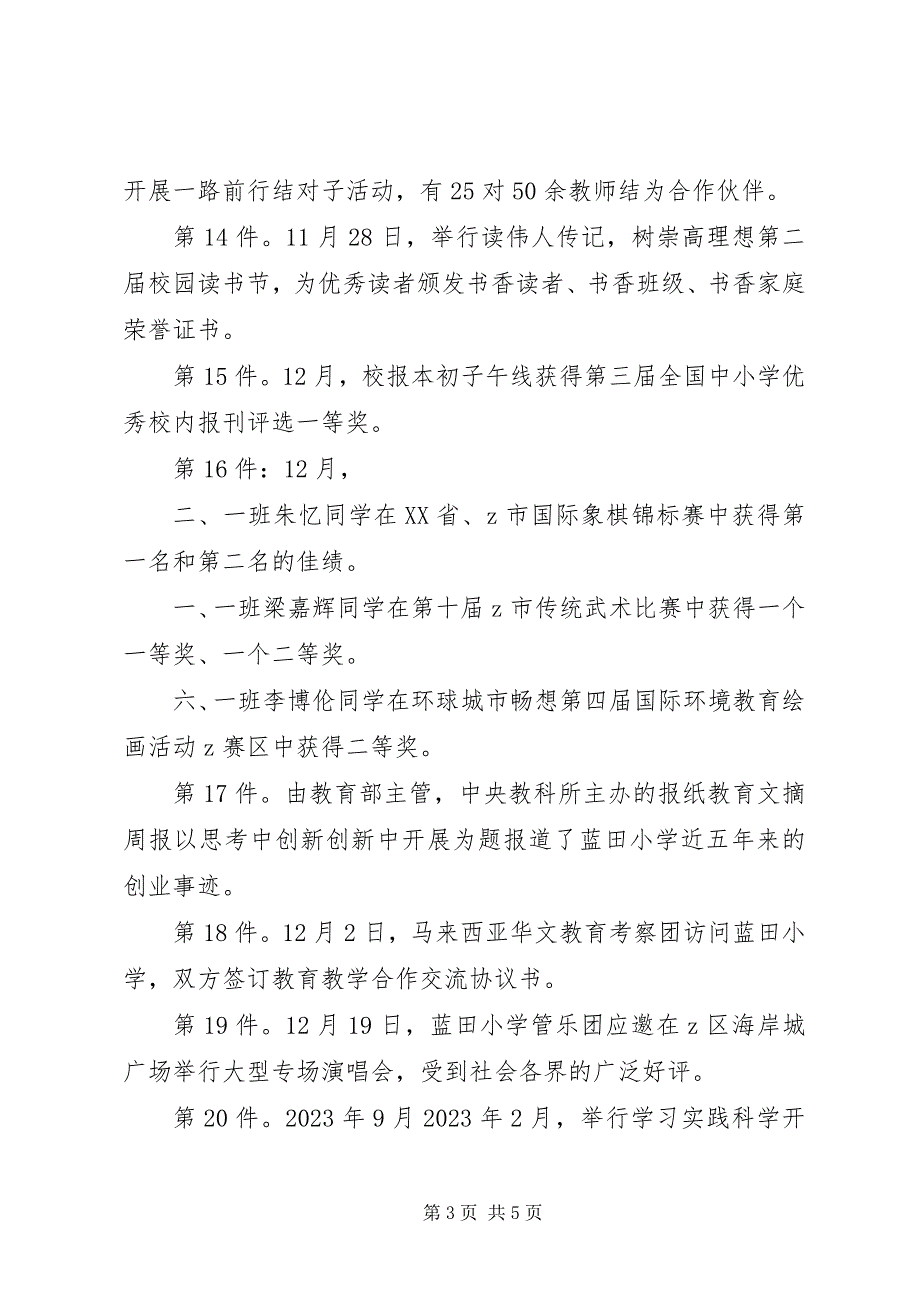 开展一路前行结对子活动，有 25 对 50 余教师结为合作伙伴。
第 14 件。11 月 28 日，举行读伟人传记，树崇高理想第二
届校园读书节，为优秀读者颁发书香读者、书香班级、书香家庭
荣誉证书。
第 15 件。12 月，校报本初子午线获得第三届全国中小学优
秀校内报刊评选一等奖。
第 16 件：12 月，
二、一班朱忆同学在 XX 省、z 市国际象棋锦标赛中获得第
一名和第二名的佳绩。
一、一班梁嘉辉同学在第十届 z 市传统武术比赛中获得一个
一等奖、一个二等奖。
六、一班李博伦同学在环球城市畅想第四届国际环境教育绘
画活动 z 赛区中获得二等奖。
第 17 件。由教育部主管，中央教科所主办的报纸教育文摘
周报以思考中创新创新中开展为题报道了蓝田小学近五年来的
创业事迹。
第 18 件。12 月 2 日，马来西亚华文教育考察团访问蓝田小
学，双方签订教育教学合作交流协议书。
第 19 件。12 月 19 日，蓝田小学管乐团应邀在 z 区海岸城
广场举行大型专场演唱会，受到社会各界的广泛好评。
第 20 件。2023 年 9 月 2023 年 2 月，举行学习实践科学开
第 3 页 共 5 页